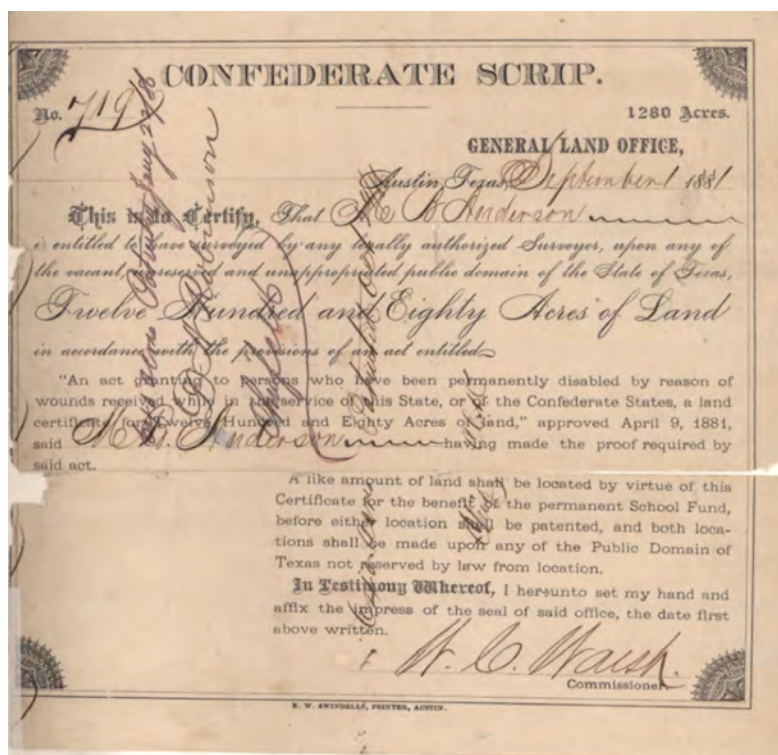 CONFEDERATE SCRIP.
No. 719
1280 Acres.
GENERAL LAND OFFICE,
Austin, Texas, September 1 1881
This is to Certify, That M B Anderson
is entitled to have surveyed by any legally authorized Surveyor, upon any of
the vacant, unreserved and unappropriated public domain of the State of Texas,
Twelve Hundred and Eighty Acres of Land
in accordance with the provisions of an act entitled
"An act granting to persons who have been permanently disabled by reason of
wounds received while in the service of this State, or of the Confederate States, a land
certificate for Twelve Hundred and Eighty Acres of land," approved April 9, 1881,
said M. B. Anderson having made the proof required by
said act.
A like amount of land shall be located by virtue of this
Certificate for the benefit of the permanent School Fund,
before either location shall be patented, and both loca-
tions shall be made upon any of the Public Domain of
Texas not reserved by law from location.
In Testimony Whereof, I hereunto set my hand and
affix the impress of the seal of said office, the date first
above written.
W. C. Walsh.
Commissioner.
E. W. SWINDELLS, PRINTER, AUSTIN.
Robinson